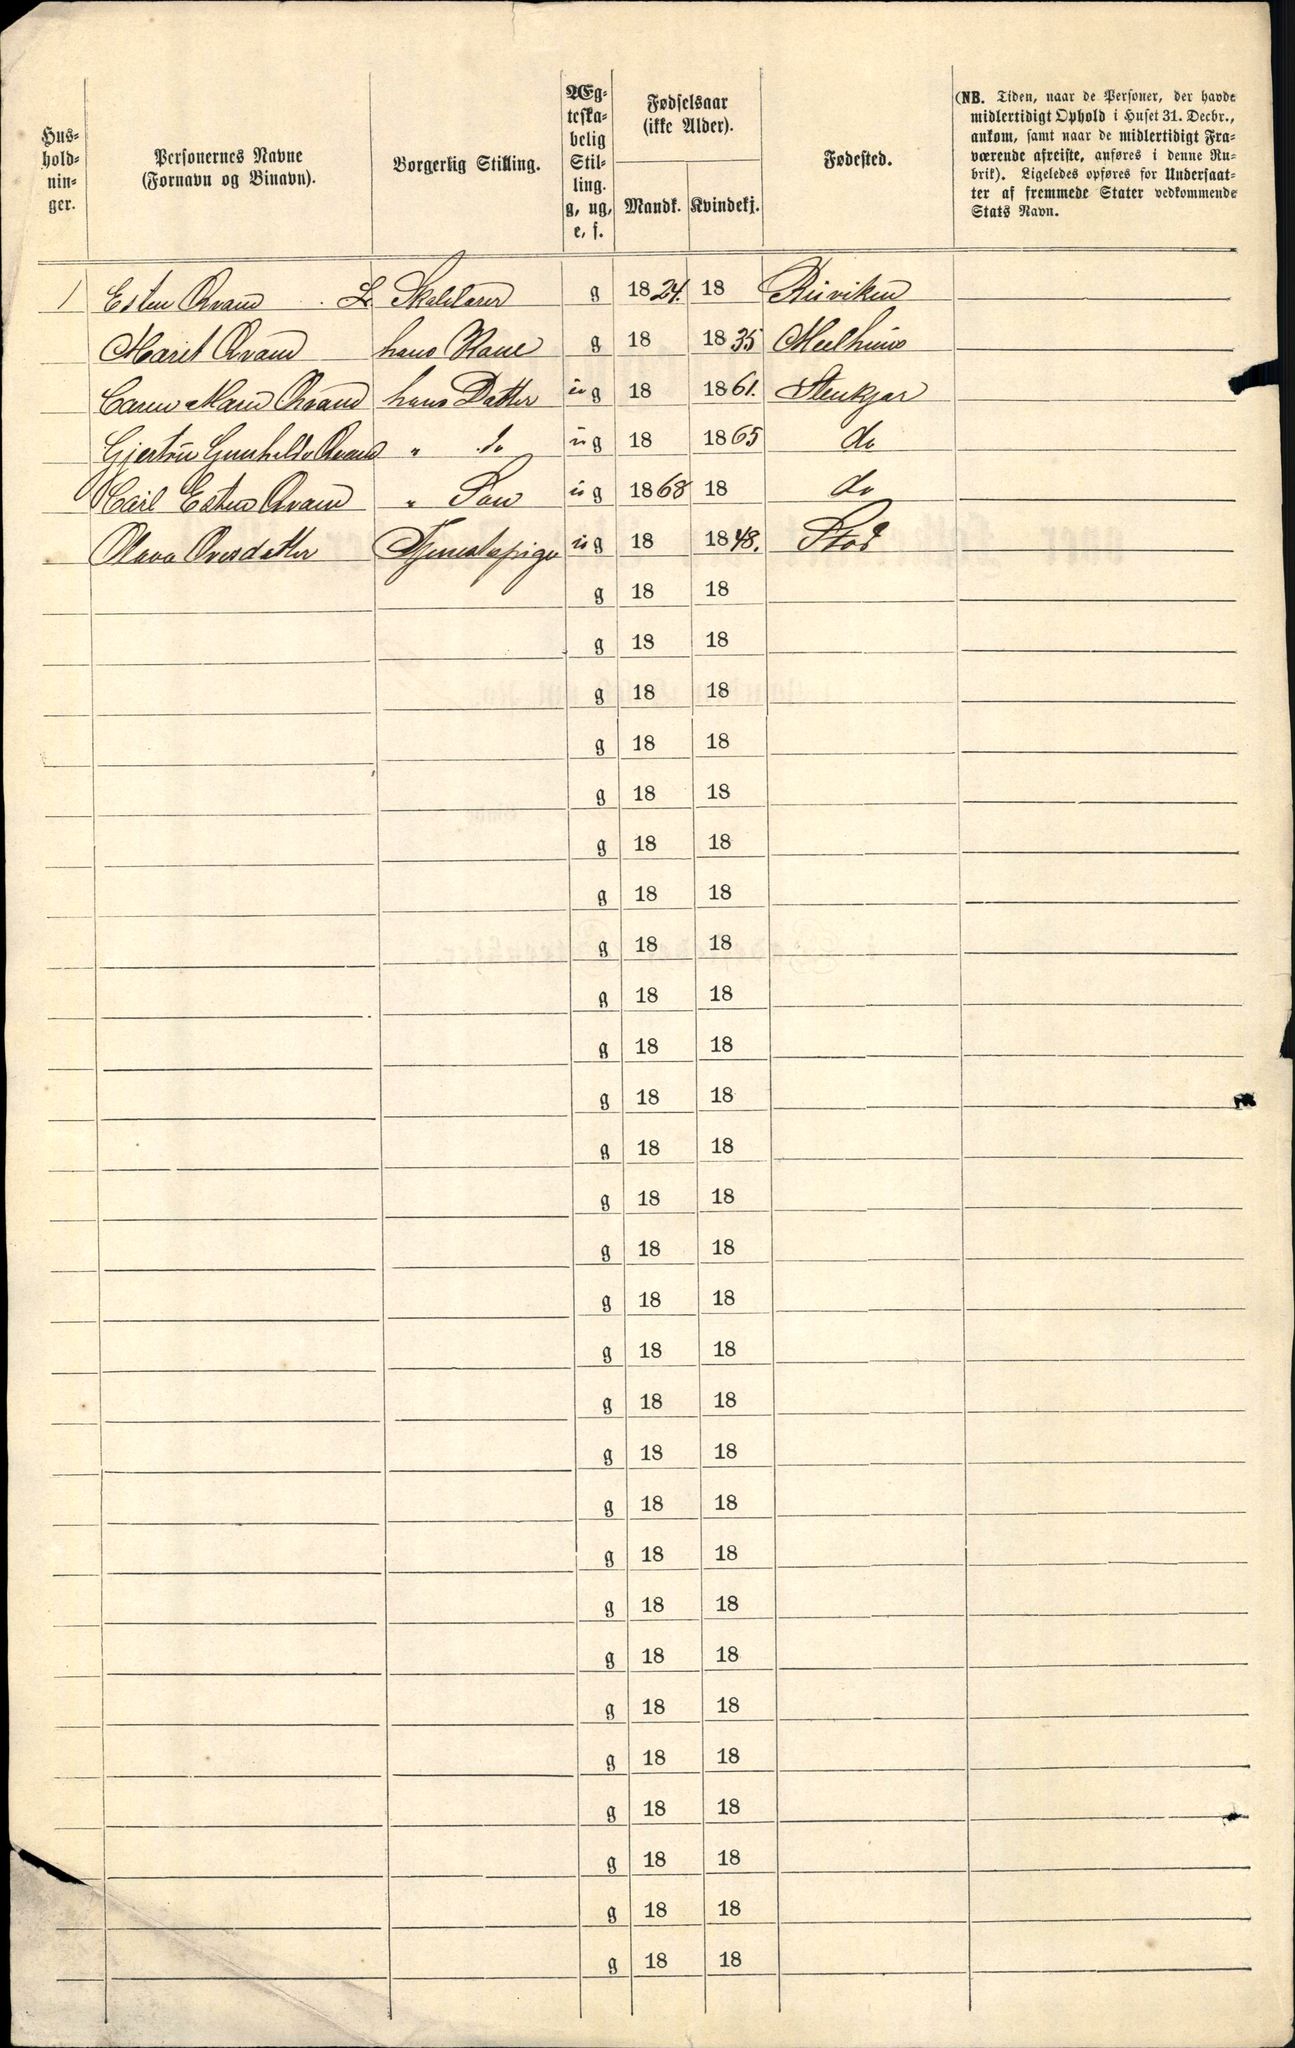 Hus-
hold-
nin-
ger.
Personernes Navne
(Fornavn og Binavn).
Borgerlig Stilling.
Æg-
teska-
belig
Stil-
ling.
g, ug,
e, f.
Fødselsaar
(ikke Alder).
Mandk. Kvindekj.
Fødested.
(NB. Tiden, naar de Personer, der havde
midlertidigt Ophold i Huset 31. Decbr.,
ankom, samt naar de midlertidigt Fra-
værende afreiste, anføres i denne Ru-
brik). Ligeledes opføres for Undersaat-
ter af fremmede Stater vedkommende
Stats Navn.
1 Esten Qvam g 1824. 18
Marit Qvam hans Kone g 18 1835 Meelhuus
Caren Marie Qvam hans Datter ug 18 1861. Stenkjær
Gjertru Gunhilda Qvam " do ug 18 1865 do
Carl Esten Qvam " Søn ug 1868 18 do
Olava Oversdatter Tjenestepige ug 18 1848. Stod
g 18 18
g 18 18
g 18 18
g 18 18
g 18 18
g 18 18
g 18 18
g 18 18
g 18 18
g 18 18
g 18 18
g 18 18
g 18 18
g 18 18
g 18 18
g 18 18
g 18 18
g 18 18
g 18 18
g 18 18
g 18 18
g 18 18
g 18 18
g 18 18
g 18 18
g 18 18
g 18 18
g 18 18